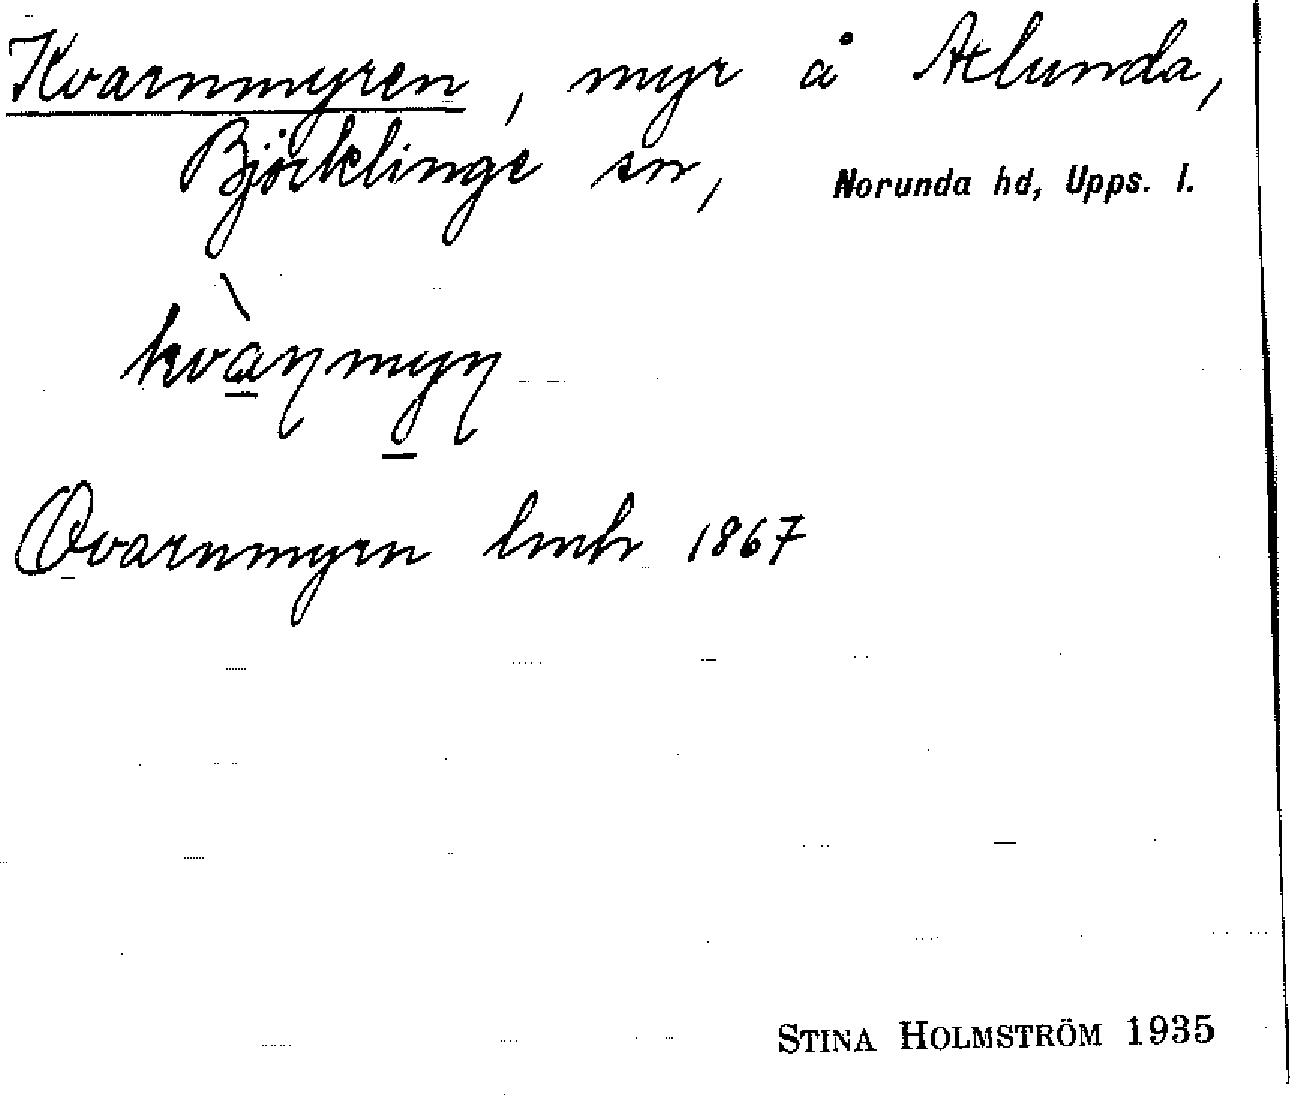 Kvarnmyren, myr å Åtlunda,
Björklinge sn, Norunda hd, Upps. l.
kvàɳmyɳ
Qvarnmyrn lmh 1867
STINA HOLMSTRÖM 1935